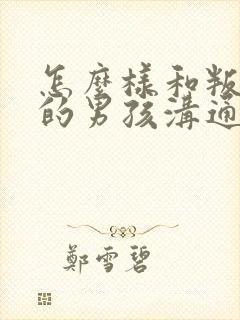 怎麼樣和叛
的男孩溝通
鄭雪碧